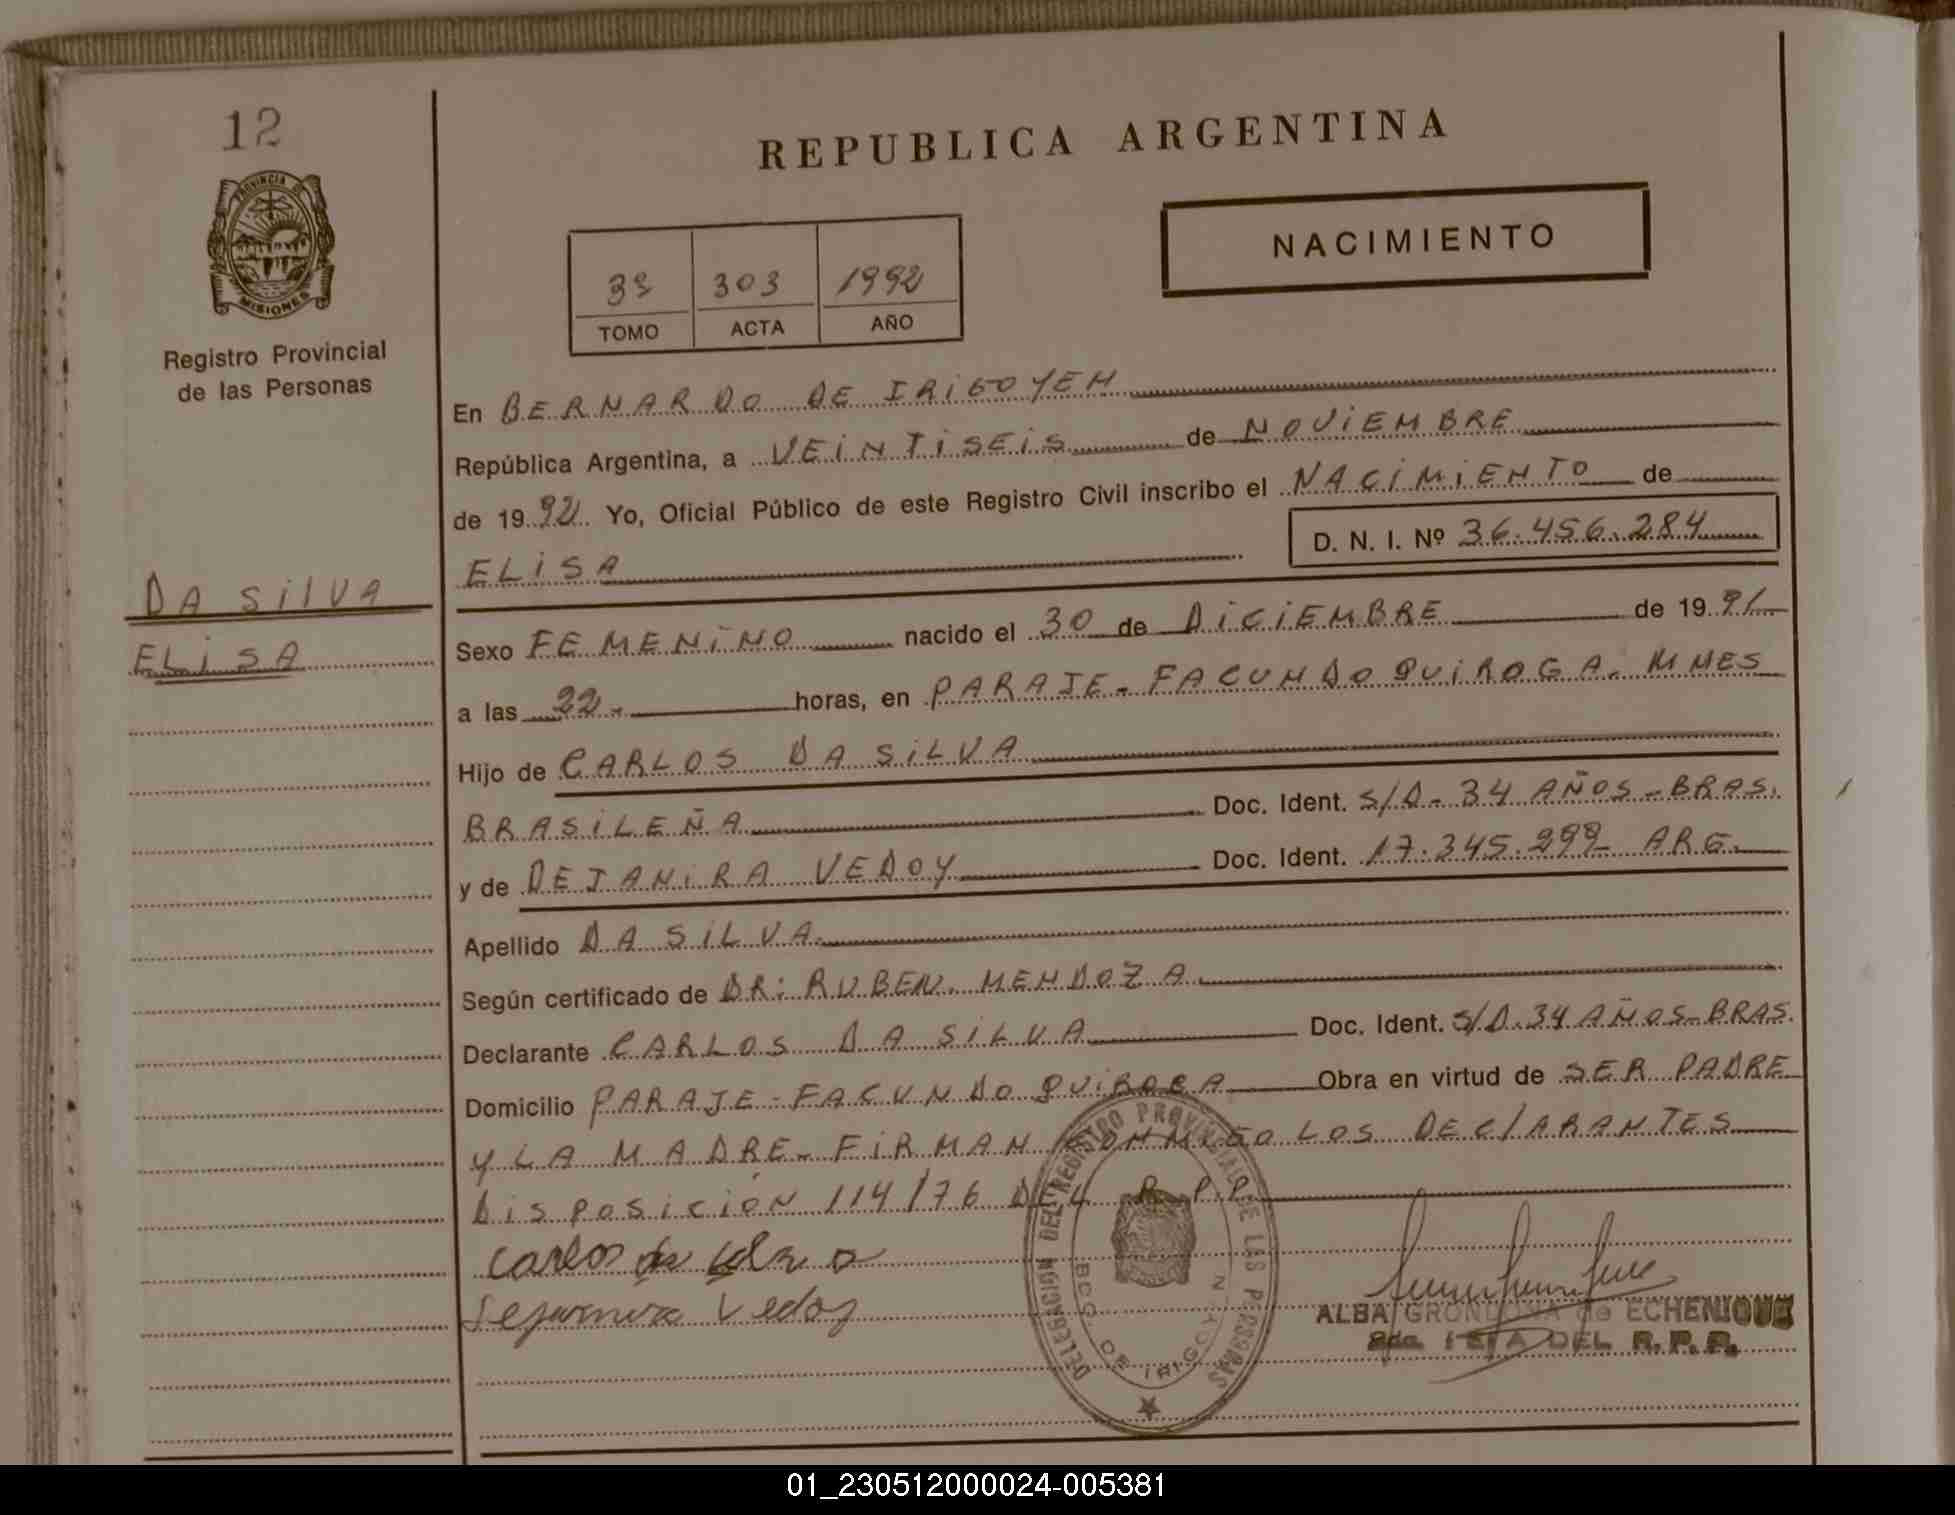 12
PROVINCIA DE
MISIONES
Registro Provincial
de las Personas
DA SILVA
ELISA
REPUBLICA ARGENTINA
NACIMIENTO
303 1992
TOMO ACTA AÑO
En BERNARDO DE IRIGOYEN
República Argentina, a VEINTISEIS de NOVIEMBRE
de 19 92 Yo, Oficial Público de este Registro Civil inscribo el NACIMIENTO de
ELISA D. N. I. Nº 36.456.284
Sexo FEMENINO nacido el 30 de DICIEMBRE de 19 91
a las 22.- horas, en PARAJE - FACUNDO QUIROGA. MNES
Hijo de CARLOS DA SILVA
BRASILEÑA Doc. Ident. S/D - 34 AÑOS - BRAS.
y de DEJANIRA VEDOY Doc. Ident. 17.345.299 ARG.
Apellido DA SILVA
Según certificado de DR: RUBEN. MENDOZA
Declarante CARLOS DA SILVA Doc. Ident. S/D. 34 AÑOS - BRAS.
Domicilio PARAJE - FACUNDO QUIROGA Obra en virtud de SER PADRE
Y LA MADRE - FIRMAN CONMIGO LOS DEClARANTES
DISPOSICIÓN 114/76 DEL R.P.P.
Carlos da
Vedoy
DELEGACION DEL REGISTRO PROVINCIAL DE LAS PERSONAS
BDO. DE IRIGOYEN
ALBA GRONDONA de ECHENIQUE
2da. JEFA DEL R.P.P.
01_230512000024-005381